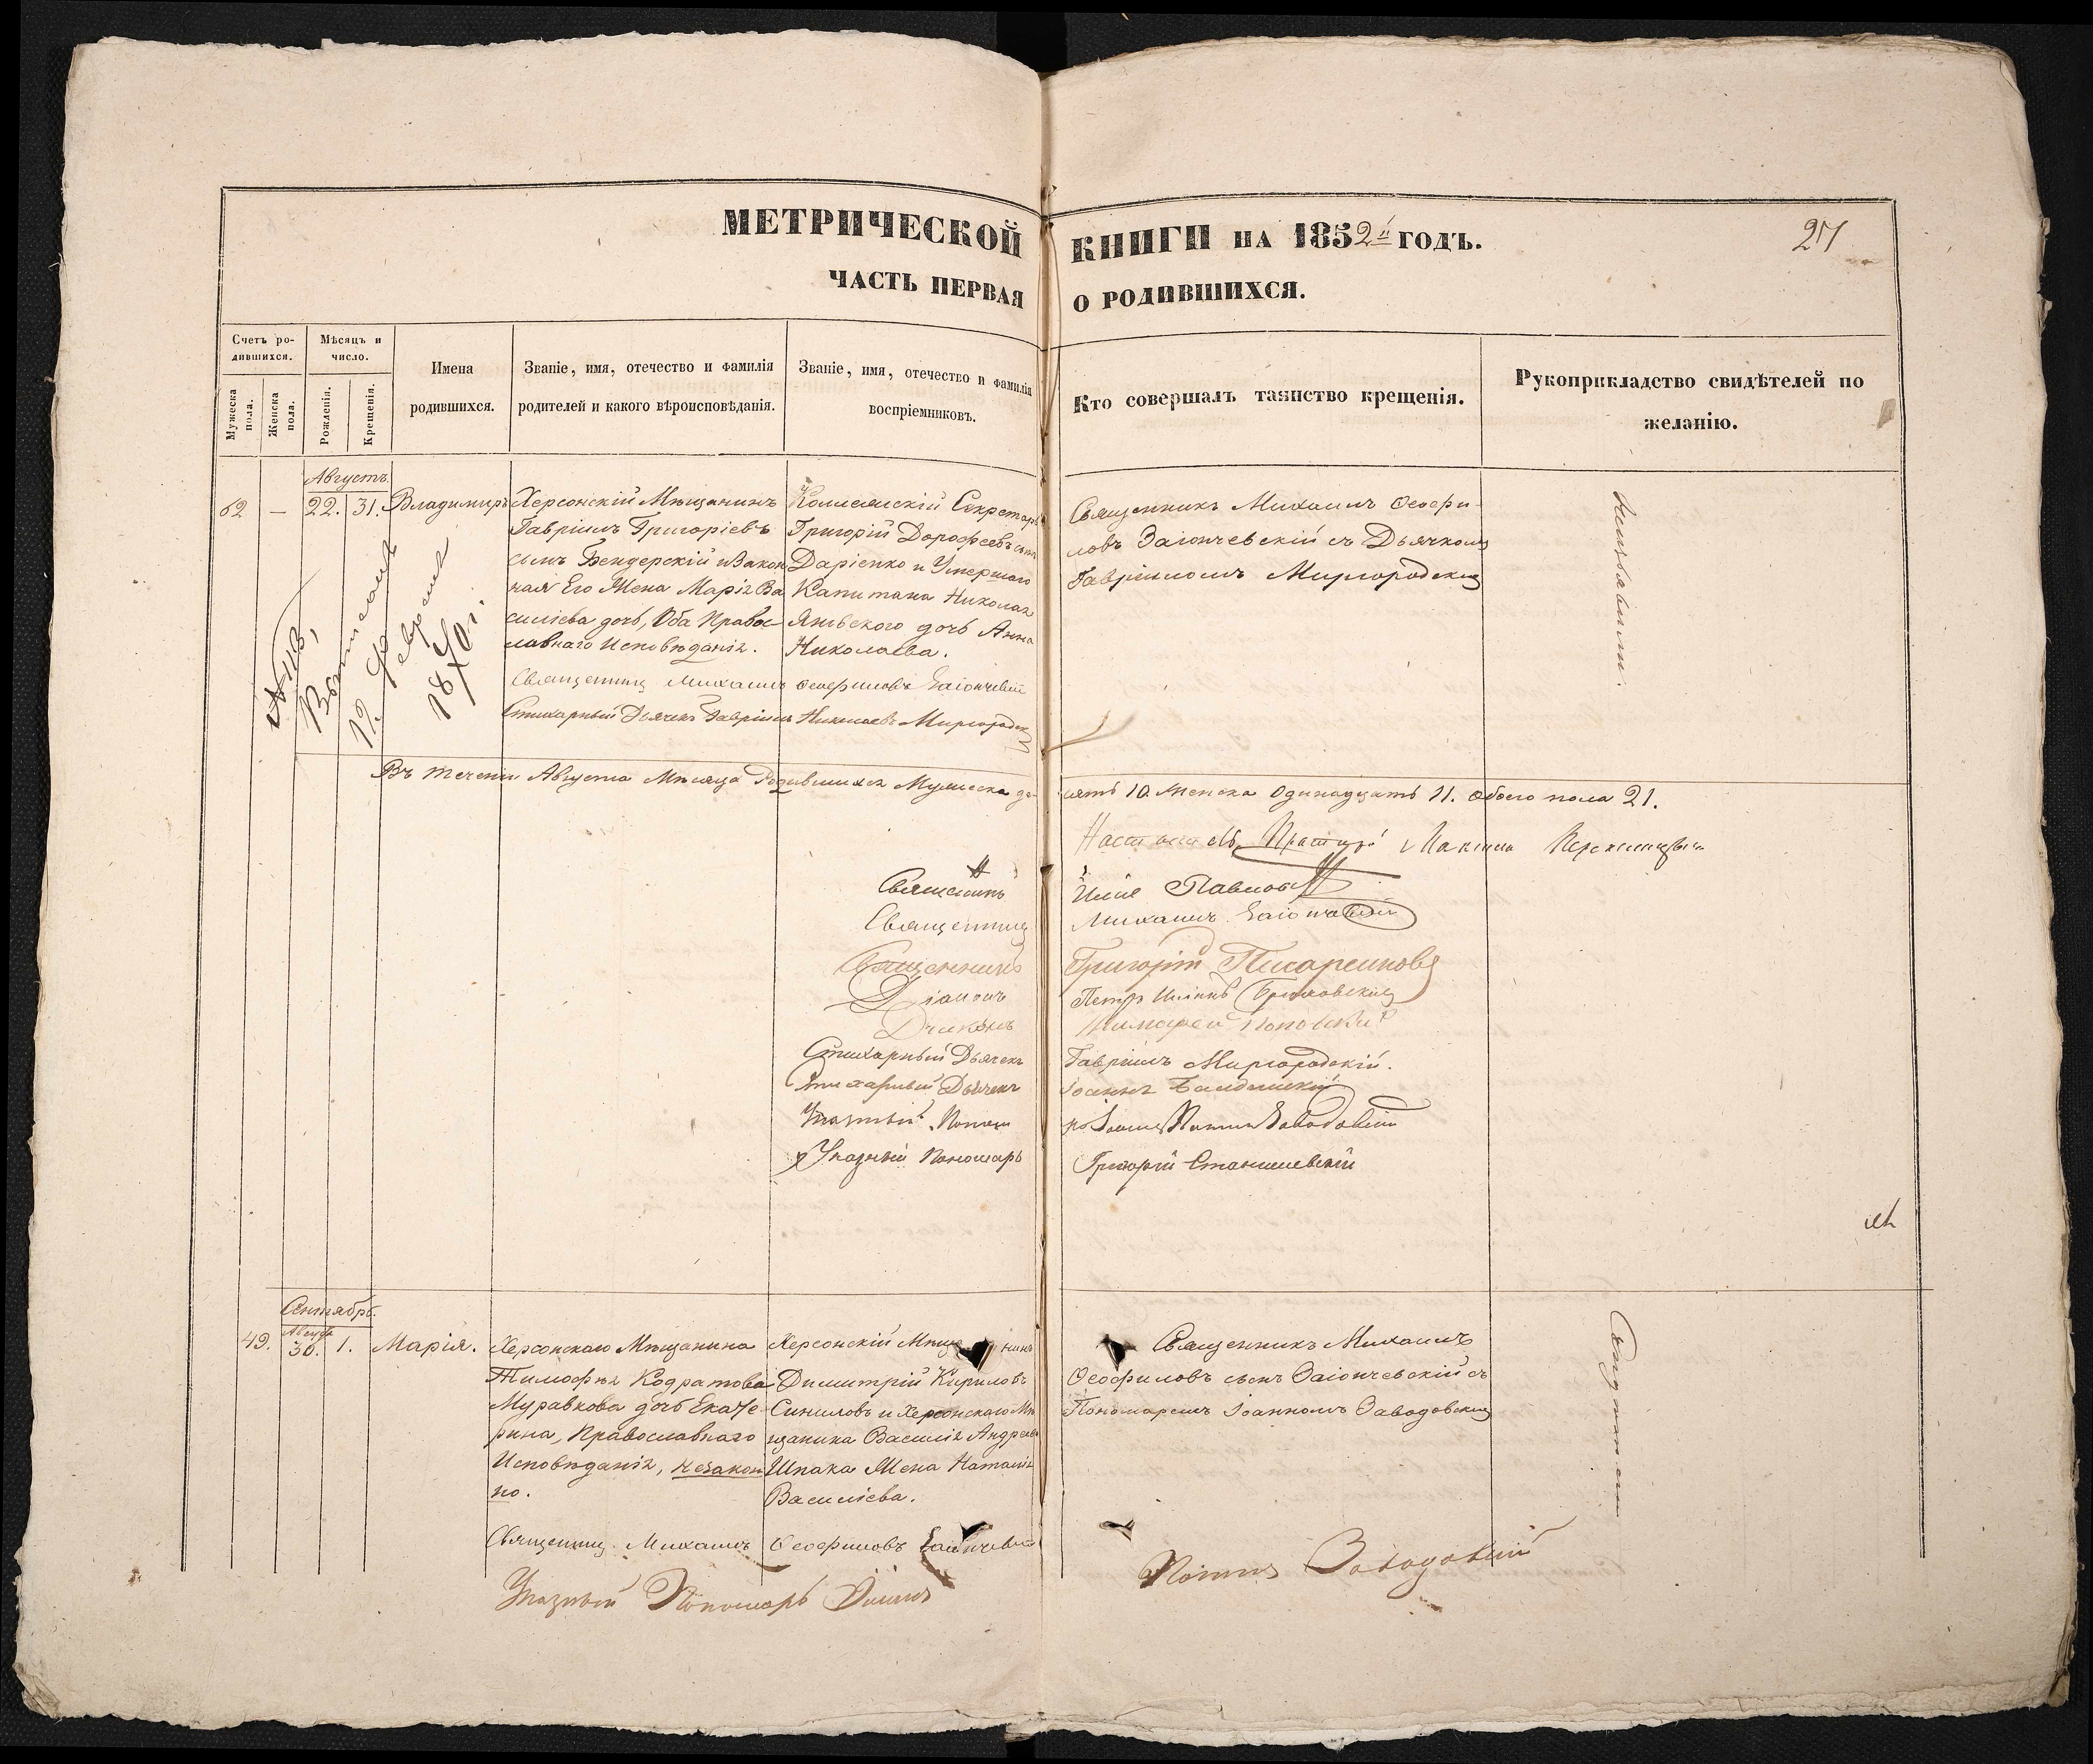 МЕТРИЧЕСКОЙ КНИГИ НА 1852й ГОДЪ.
27
ЧАСТЬ ПЕРВАЯ О РОДИВШИХСЯ.
Счетъ ро-
дившихся.
Мужеска пола.
Женска пола.
Мѣсяцъ и
число.
Рожденія.
Крещенія.
Имена
родившихся.
Званіе, имя, отечество и фамилія
родителей и какого вѣроисповѣданія.
Званіе, имя, отечество и фамилія
воспріемниковъ.
Кто совершалъ таинство крещенія.
Рукоприкладство свидѣтелей по
желанію.
Августъ.
62
—
22.
31.
Владимиръ
Херсонскій Мѣщанинъ
Гавріилъ Григоріевъ
сынъ Бендерскій и Закон
ная Его Жена Марія Ва
силіева дочь, Оба Правос-
лавнаго Исповѣданія.
Колежскій Секретарь
Григорій Дорофеевъ сынъ
Даріенко и Умершаго
Капитана Николая
дочь Анна
Николаева.
Священникъ Михаилъ Ѳеофи-
ловъ Заіончевскій съ Дьячкомъ
Гавріиломъ Миргородскимъ
Священникъ Михаилъ Ѳеофиловъ Заіончевскій
Стихарный Дьячекъ Гавріилъ Николаевъ Миргородскій
19. Февраля
1870 г.
Въ теченіи Августа Мѣсяца Родившихся Мужеска де-
сять 10. Женска Одинадцать 11. Обоего пола 21.
Священникъ Илія Павловъ
Священникъ Михаилъ Заіончевскій
Священникъ Григорій
Діаконъ Петръ
Діаконъ
Стихарный Дьячекъ Гавріилъ Миргородскій.
Стихарный Дьячекъ Іоаннъ
Указный Поном
Указный Пономарь Григорій Станишевскій
Сентябрь.
Авгус
49.
30.
1.
Марія.
Херсонскаго Мѣщанина
Тимофѣя Кодратова
Муравкова дочь Екате-
рина, Православнаго
Исповѣданія, незакон
но.
Херсонскій Мѣща нинъ
Димитрій Кириловъ
Синиловъ и Херсонскаго Мѣ
щанина Василія Андреева
Шпака Жена Наталія
Василіева.
Священникъ Михаилъ
Ѳеофиловъ сынъ Заіончевскій съ
Пономаремъ Іоанномъ Заводовскимъ
Священникъ Михаилъ Ѳеофиловъ Заіончевскій
Указный Пономарь Іоаннъ Заводовскій